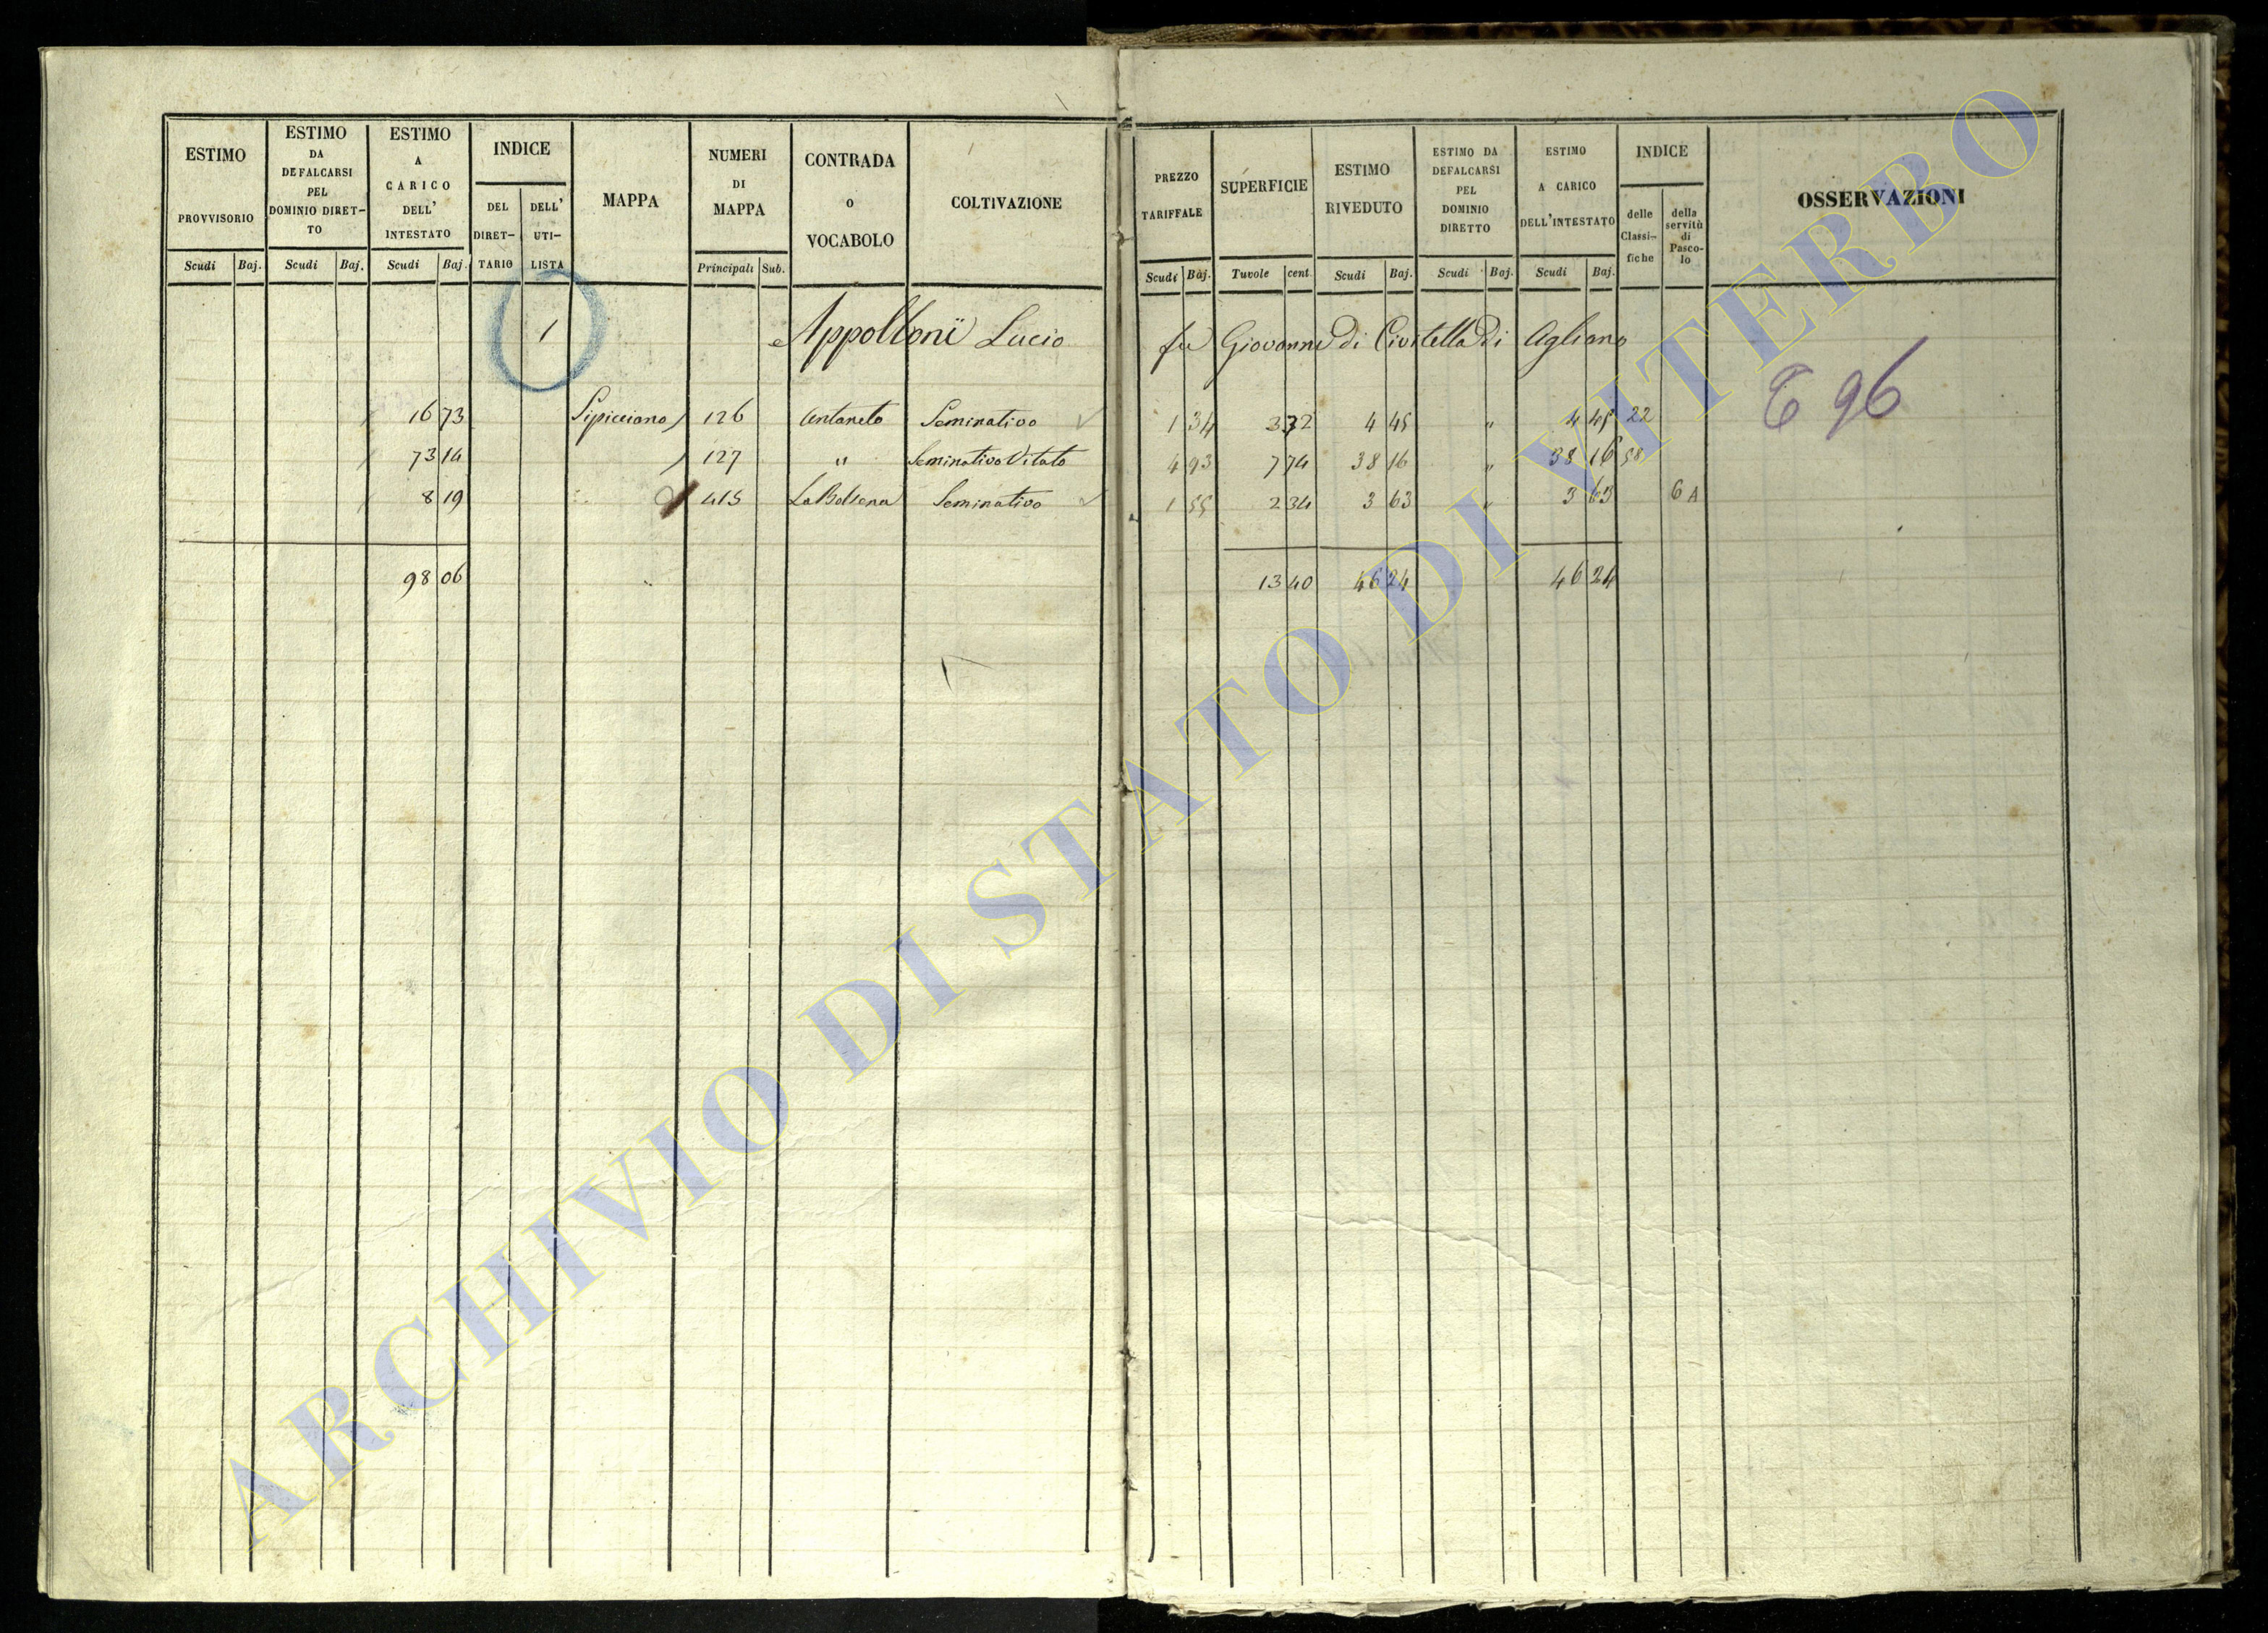 ESTIMO PROVVISORIO Scudi Baj.
ESTIMO DA DEFALCARSI PEL DOMINIO DIRET-TO Scudi Baj.
ESTIMO A CARICO DELL' INTESTATO Scudi Baj.
INDICE DEL DIRET-TARIO DELL' UTI-LISTA
MAPPA
NUMERI DI MAPPA Principali Sub.
CONTRADA o VOCABOLO
COLTIVAZIONE
PREZZO TARIFFALE Scudi Baj.
SUPERFICIE Tavole cent.
ESTIMO RIVEDUTO Scudi Baj.
ESTIMO DA DEFALCARSI PEL DOMINIO DIRETTO Scudi Baj.
ESTIMO A CARICO DELL'INTESTATO Scudi Baj.
INDICE delle Classi-fiche della servitù di Pasco-lo
OSSERVAZIONI
1 Appolloni Lucio fu Giovanni di Civitella di Agliano
E 96
16 73 Sipicciano 126 Seminativo 1 34 3 32 4 45 " 4 45 22
73 14 127 " Seminativo Vitato 4 93 7 74 38 16 " 38 16 58
8 19 415 La Bolsena Seminativo 1 55 2 34 3 63 " 3 63 6 A
98 06 13 40 46 24 46 24
ARCHIVIO DI STATO DI VITERBO